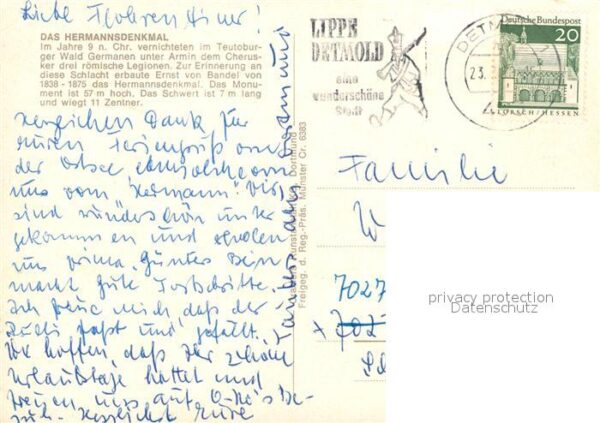 Liebe
DAS HERMANNSDENKMAL
Im Jahre 9 n. Chr. vernichteten im Teutobur-
ger Wald Germanen unter Armin dem Cherus-
ker drei römische Legionen. Zur Erinnerung an
diese Schlacht erbaute Ernst von Bandel von
1838 - 1875 das Hermannsdenkmal. Das Monu-
ment ist 57 m hoch. Das Schwert ist 7 m lang
und wiegt 11 Zentner.
herzlichen Dank für
euren Feriengruß von
der Ostsee
uns vom "Hermann". Wir
sind wunderschön unter
gekommen und erholen
uns prima. Günters Bein
macht gute Fortschritte.
Ich freue mich, daß der
paßt und gefällt.
Wir hoffen, daß Ihr schöne
Urlaubstage hattet und
freuen uns auf
Herzlichst Eure
Dortmund
Freigeg. d. Reg.-Präs. Münster Nr. 6383
LIPPE
DETMOLD
eine
wunderschöne
Stadt
DETMOLD
23.
Deutsche Bundespost
20
LORSCH/HESSEN
Familie
W
7027
privacy protection
Datenschutz